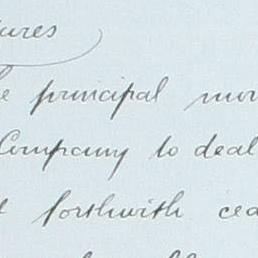 tures
principal mon
Company to deal
forthwith cea